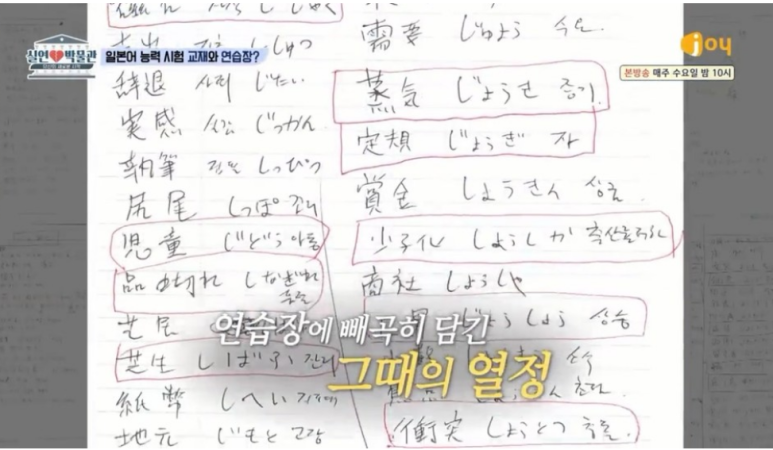 실연박물관
일본어 능력 시험 교재와 연습장?
joy
본방송 매주 수요일 밤 10시
辞退 사퇴 じたい
実感 실감 じっかん
執筆 집필 しっぴつ
尻尾 しっぽ 꼬리
児童 じどう 아동
品切れ しなぎれ 품절
芝居
芝生 しばふ 잔디
紙幣 しへい 지폐
地元 じもと 고향
需要 じゅよう 수요
蒸気 じょうき 증기
定規 じょうぎ 자
賞金 しょうきん 상금
少子化 しょうしか
商社 しょうしゃ
じょうしょう 상승
초점
衝突 しょうとつ 충돌
연습장에 빼곡히 담긴
그때의 열정